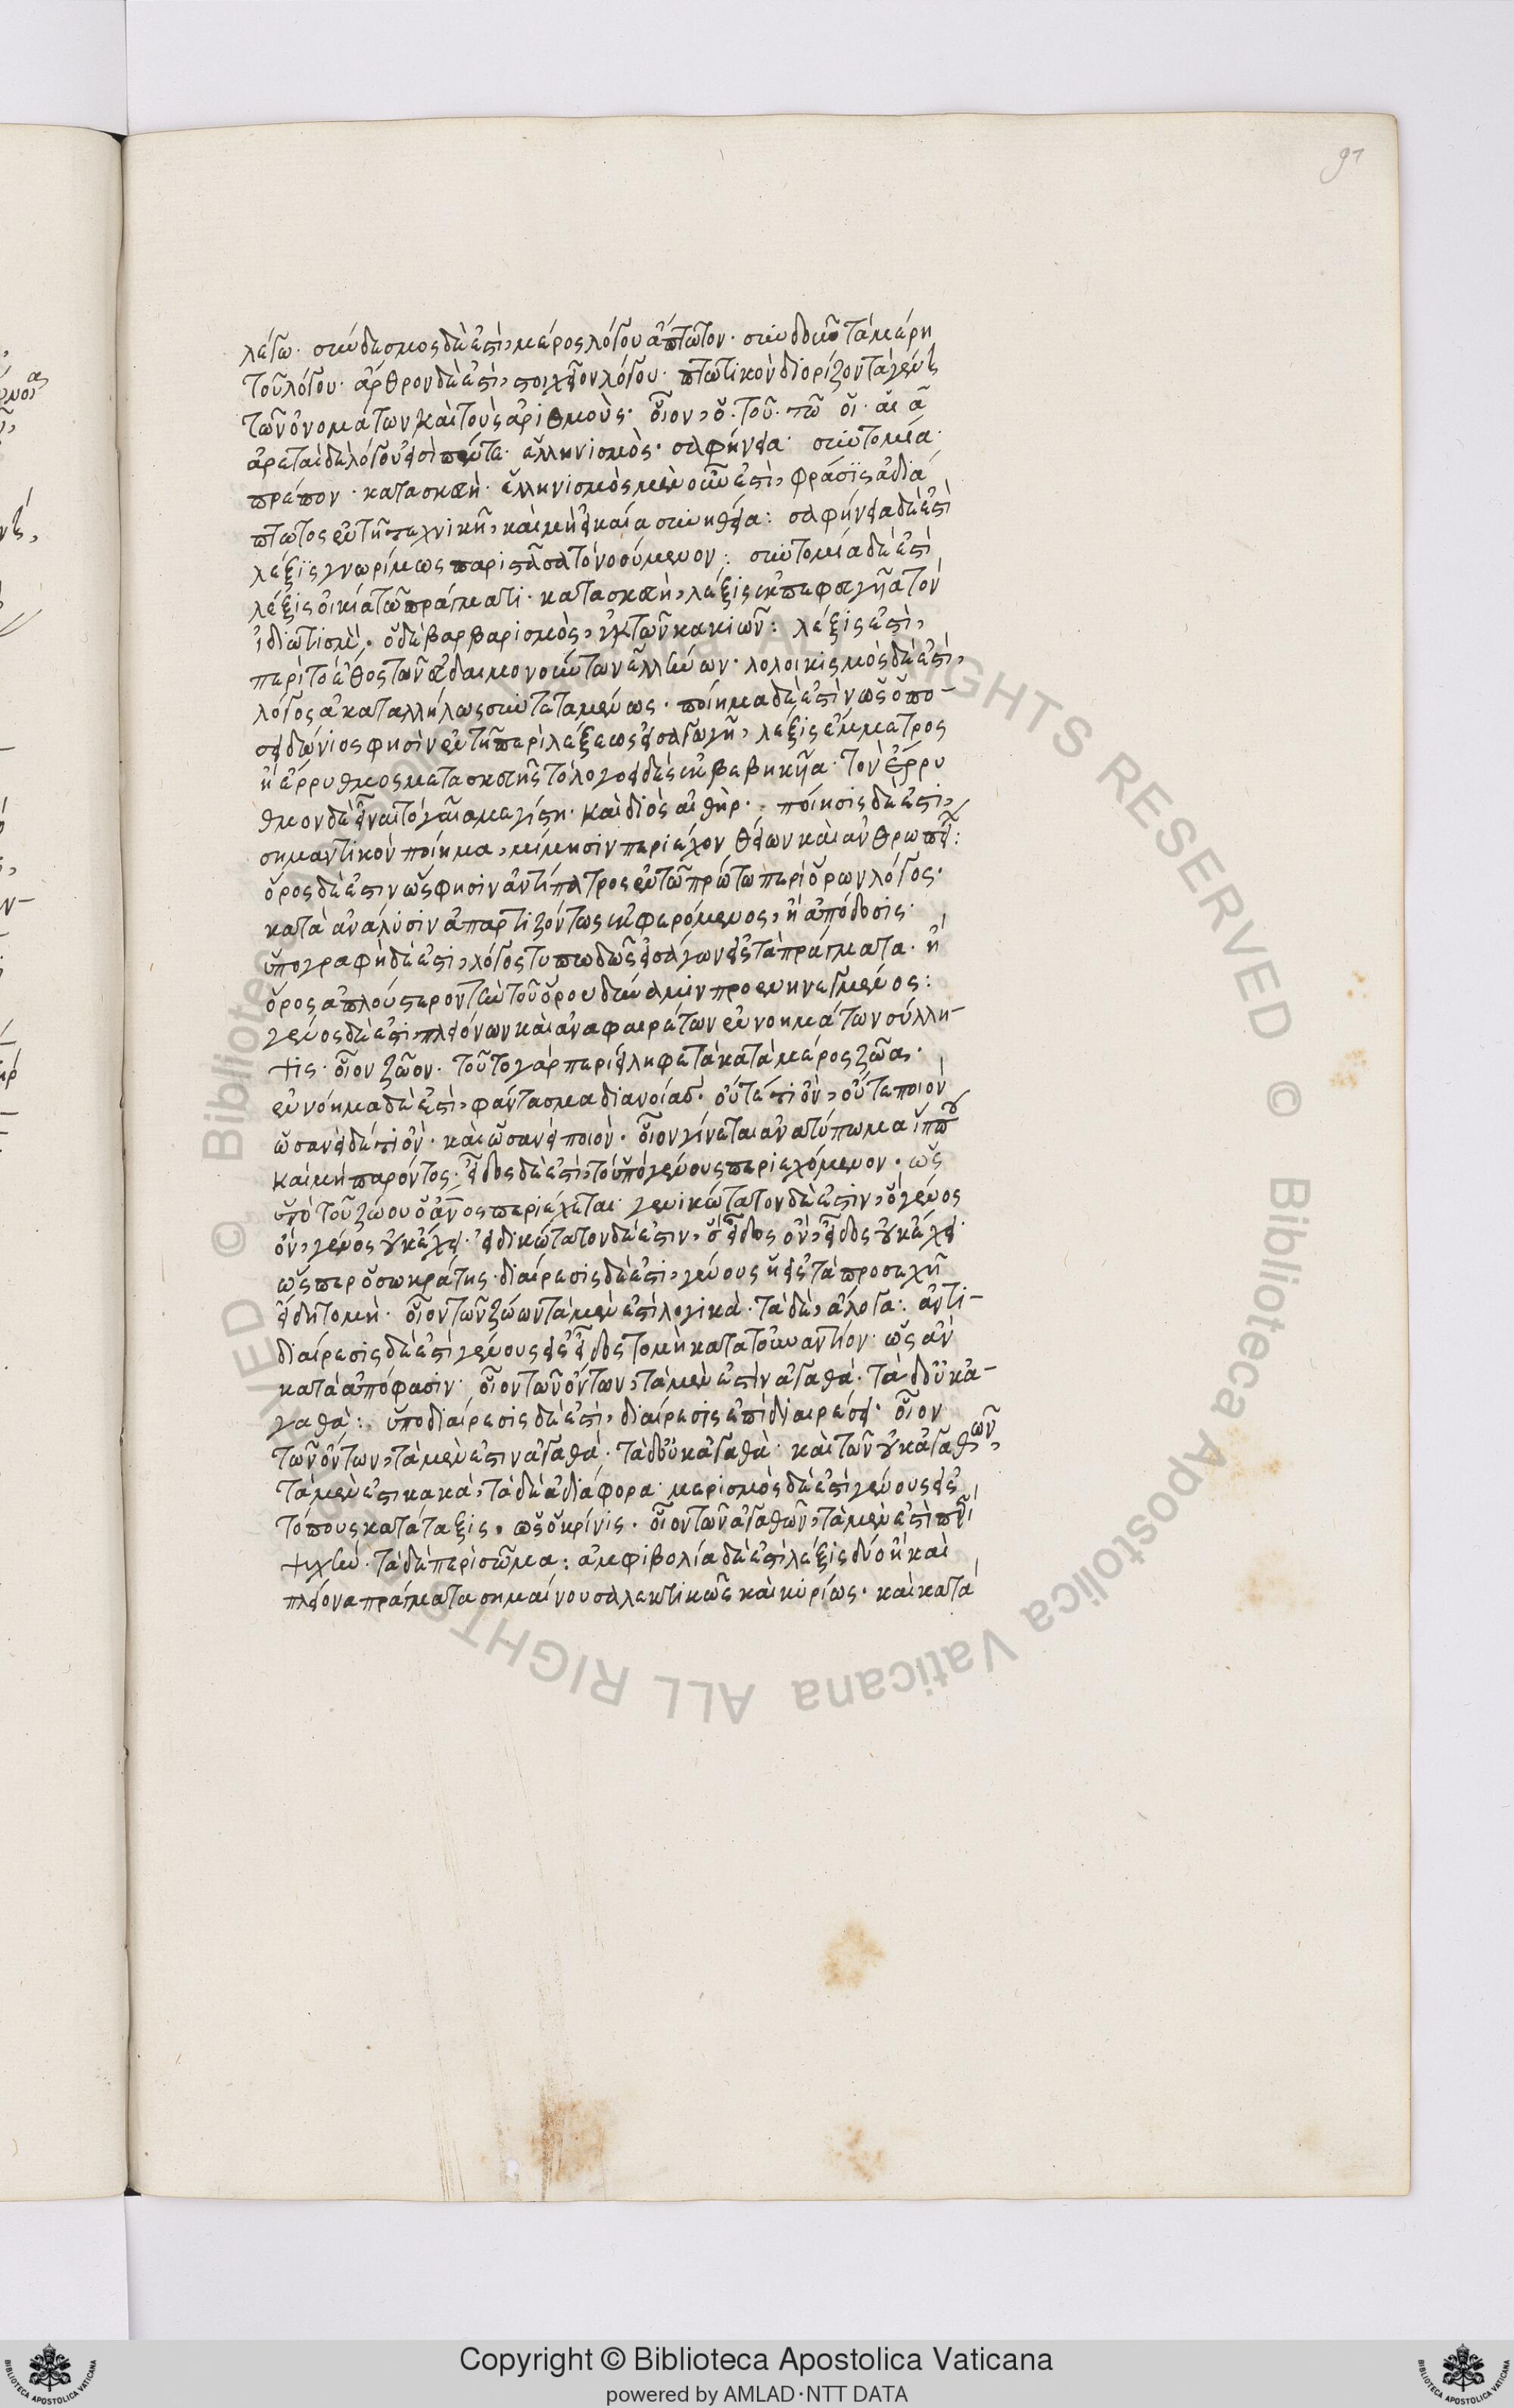 91
λέγω· σύνδεσμος δέ ἐστι, μέρος λόγου ἄπτωτον· συνδοῦν τὰ μέρη
τοῦ λόγου· ἄρθρον δέ ἐστι, στοιχεῖον λόγου πτωτικὸν διορίζον τὰ γένη
τῶν ὀνομάτων καὶ τοὺς ἀριθμούς· οἷον, ὁ· τοῦ· τῶ οἱ· αἱ
ἀρεταὶ δὲ λόγου εἰσὶ πέντε· ἑλληνισμὸς· σαφήνεια· συντομία·
πρέπον· κατασκευὴ· ἑλληνισμὸς μὲν οὖν ἐστι, φράσϊς ἀδιά
πτωτος ἐν τῆ τεχνικῆ, καὶ μὴ εἰκαία συνηθεία: σαφήνεια δέ ἐστι
λέξϊς γνωρίμως παριστᾶσα τὸ νοούμενον: συντομία δέ ἐστι
λέξις οἰκεία τῶ πράγματι· κατασκευὴ, λέξις ἐκπεφευγῆα τὸν
ἰδιωτισμόν· ὁ δὲ βαρβαρισμὸς, ἐκ τῶν κακιῶν: λέξις ἐστὶ,
περὶ τὸ ἔθος τῶν εὐδαιμονούντων ἑλλήνων· λολοικισμὸς δέ ἐστι,
λόγος ἀκαταλλήλως συντεταμένως· ποίημα δέ ἐστιν ὡς ὁ πο-
σειδώνιος φησὶν ἐν τῆ περὶ λέξεως εἰσαγωγῆ, λέξις ἔμμετρος
ἢ ἔρρυθμος μετασκευῆς τὸ λογοειδὲς ἐκβεβηκῆα· τὸν ἔρρυ
θμον δὲ εἶναι τὸ γαῖα μεγίστη· καὶ διὸς αἰθὴρ: ποίησις δέ ἐστι,
σημαντικὸν ποίημα, μίμησιν περιέχον θείων καὶ ἀνθρωπεί:
ὅρος δέ ἐστιν ὥς φησιν ἀντίπατρος ἐν τῶ πρώτω περὶ ὅρων λόγος·
κατὰ ἀνάλυσιν ἀπαρτιζόντως ἐκφερόμενος, ἢ ἀπόδοσις·
ὑπογραφὴ δέ ἐστι, λόγος τυπωδῶς εἰσάγων εἰς τὰ πράγματα· ἢ
ὅρος ἁπλούστερον τὴν τοῦ ὅρου δύναμιν προενηνεγμένος:
γένος δέ ἐστι, πλειόνων καὶ ἀναφαιρέτων ἐννοημάτων σύλλη-
ψις· οἷον ζῶον· τοῦτο γὰρ περιείληφε τὰ κατὰ μέρος ζῶα·
ἐννόημα δέ ἐστι, φάντασμα διανοίας· οὔτε τι ὂν, οὔτε ποιὸν
ὡσανεὶ δέ τι ὂν· καὶ ὡσανεὶ ποιὸν· οἷον γίνεται ἀνατύπωμα ἵππου
καὶ μὴ παρόντος· εἶδος δέ ἐστι, τὸ ὑπὸ γένους περιεχόμενον· ὡς
ὑπὸ τοῦ ζώου ὁ ἄνος περιέχεται· γενικώτατον δέ ἐστιν, ὃ γένος
ὂν, γένος οὐκ ἔχει· εἰδικώτατον δέ ἐστιν, ὃ εἶδος ὂν, εἶδος οὐκ ἔχει·
ὥσπερ ὁ σωκράτης· διαίρεσις δέ ἐστι, γένους ἡ εἰς τὰ προσεχῆ
εἴδη τομὴ· οἷον τῶν ζώων τὰ μέν ἐστι λογικὰ· τὰ δὲ, ἄλογα: ἀντι-
διαίρεσις δέ ἐστι γένους εἰς εἶδος τομὴ κατὰ τοὐναντίον· ὡς ἂν
κατὰ ἀπόφασιν· οἷον τῶν ὄντων, τὰ μέν ἐστιν ἀγαθά· τὰ δ’ οὐκ ἀ-
γαθά: ὑποδιαίρεσις δέ ἐστι, διαίρεσις ἐπὶ διαιρέσει· οἷον
τῶν ὄντων, τὰ μέν ἐστιν ἀγαθά· τὰ δ’ οὐκ ἀγαθὰ· καὶ τῶν οὐκ ἀγαθῶν,
τὰ μέν ἐστι κακὰ, τὰ δὲ ἀδιάφορα· μερισμὸς δέ ἐστι γένους εἰς
τόπους κατάταξις, ὡς ὁ κρίνις· οἷον τῶν ἀγαθῶν, τὰ μέν ἐστι περὶ
ψυχήν· τὰ δὲ περὶ σῶμα: ἀμφιβολία δέ ἐστι λέξις δύο ἢ καὶ
πλείονα πράγματα σημαίνουσα λεκτικῶς καὶ κυρίως· καὶ κατὰ
Copyright © Biblioteca Apostolica Vaticana
powered by AMLAD·NTT DATA